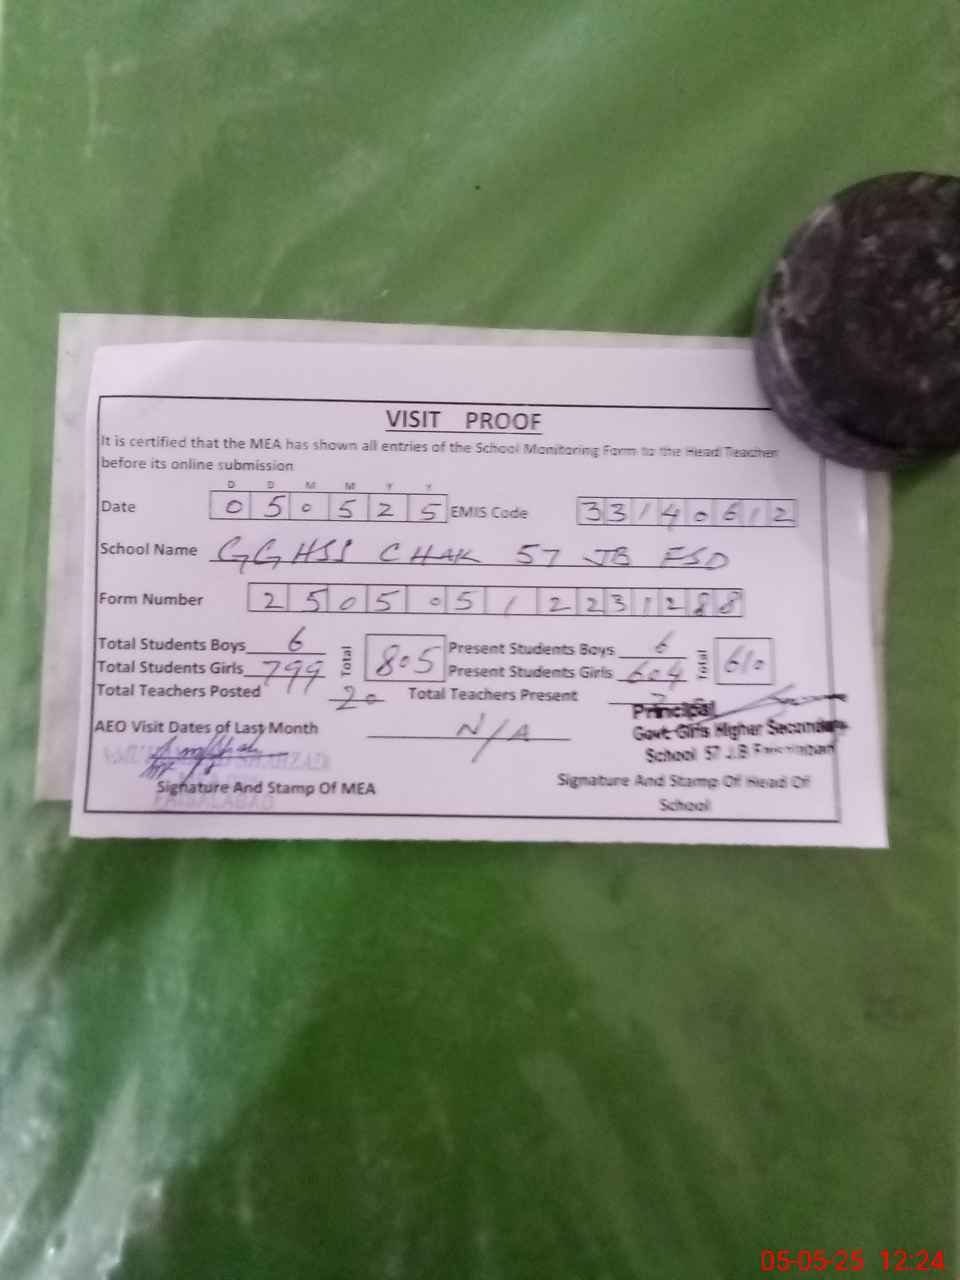 VISIT PROOF
It is certified that the MEA has shown all entries of the School Monitoring Form to the Head Teacher
before its online submission
D D M M Y Y
Date 050525 EMIS Code 33140612
School Name GGHSS CHAK 57 JB FSD
Form Number 25050512231288
Total Students Boys 6 Total 805 Present Students Boys 6 Total 610
Total Students Girls 799 Present Students Girls 604
Total Teachers Posted 20 Total Teachers Present
Principal
AEO Visit Dates of Last Month N/A Govt: Girls Higher Secondary
School 57 J.B Faisalabad
SHAHZAD
Signature And Stamp Of MEA Signature And Stamp Of Head Of
School
FAISALABAD
05-05-25 12:24